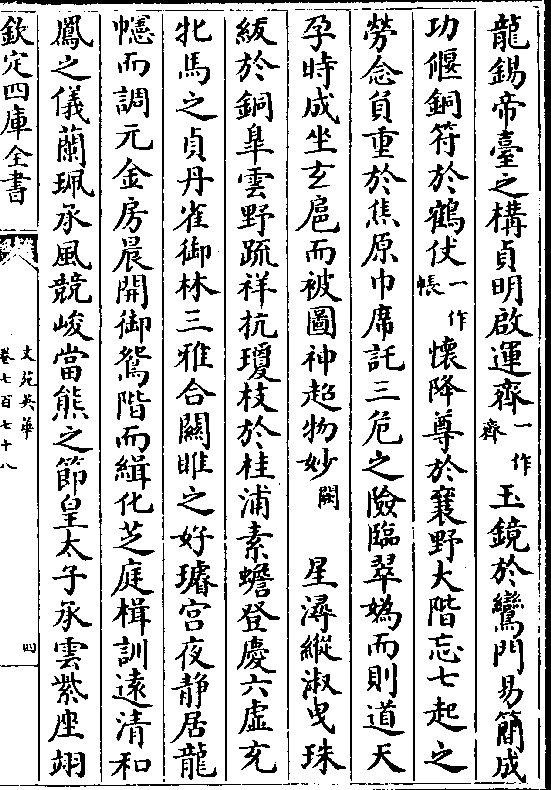 龍錫帝臺之構貞明啟運齊一作齊玉鏡於鸞門易簡成
功偃銅符於鶴仗一作帳懷降尊於襄野大階忘七起之
勞念負重於焦原巾席託三危之險臨翠媯而則道天
孕時成坐玄扈而被圖神超物妙闕星潯縱淑曳珠
紱於銅臯雲野疏祥抗瓊枝於桂浦素蟾登慶六虛充
牝馬之貞丹雀御林三雅合關雎之好璿宮夜靜居龍
幰而調元金房晨開御鴛階而緝化芝庭楫訓遠清和
鳳之儀蘭珮承風競峻當熊之節皇太子承雲紫座翊
欽定四庫全書
文苑英華
卷七百七十八
四